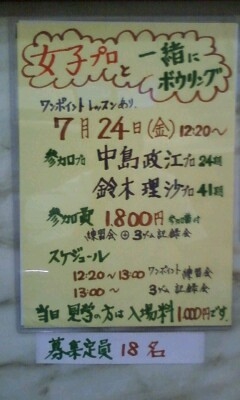 女子プロと一緒にボウリング
ワンポイントレッスンあり
7月24日(金) 12:20〜
参加プロ 中島政江プロ 24期
鈴木理沙プロ 41期
参加費 1,800円
練習会 ⊕ 3ゲーム記録会
スケジュール
12:20〜13:00 ワンポイント練習会
13:00〜 3ゲーム記録会
当日見学の方は入場料1000円です。
募集定員 18名